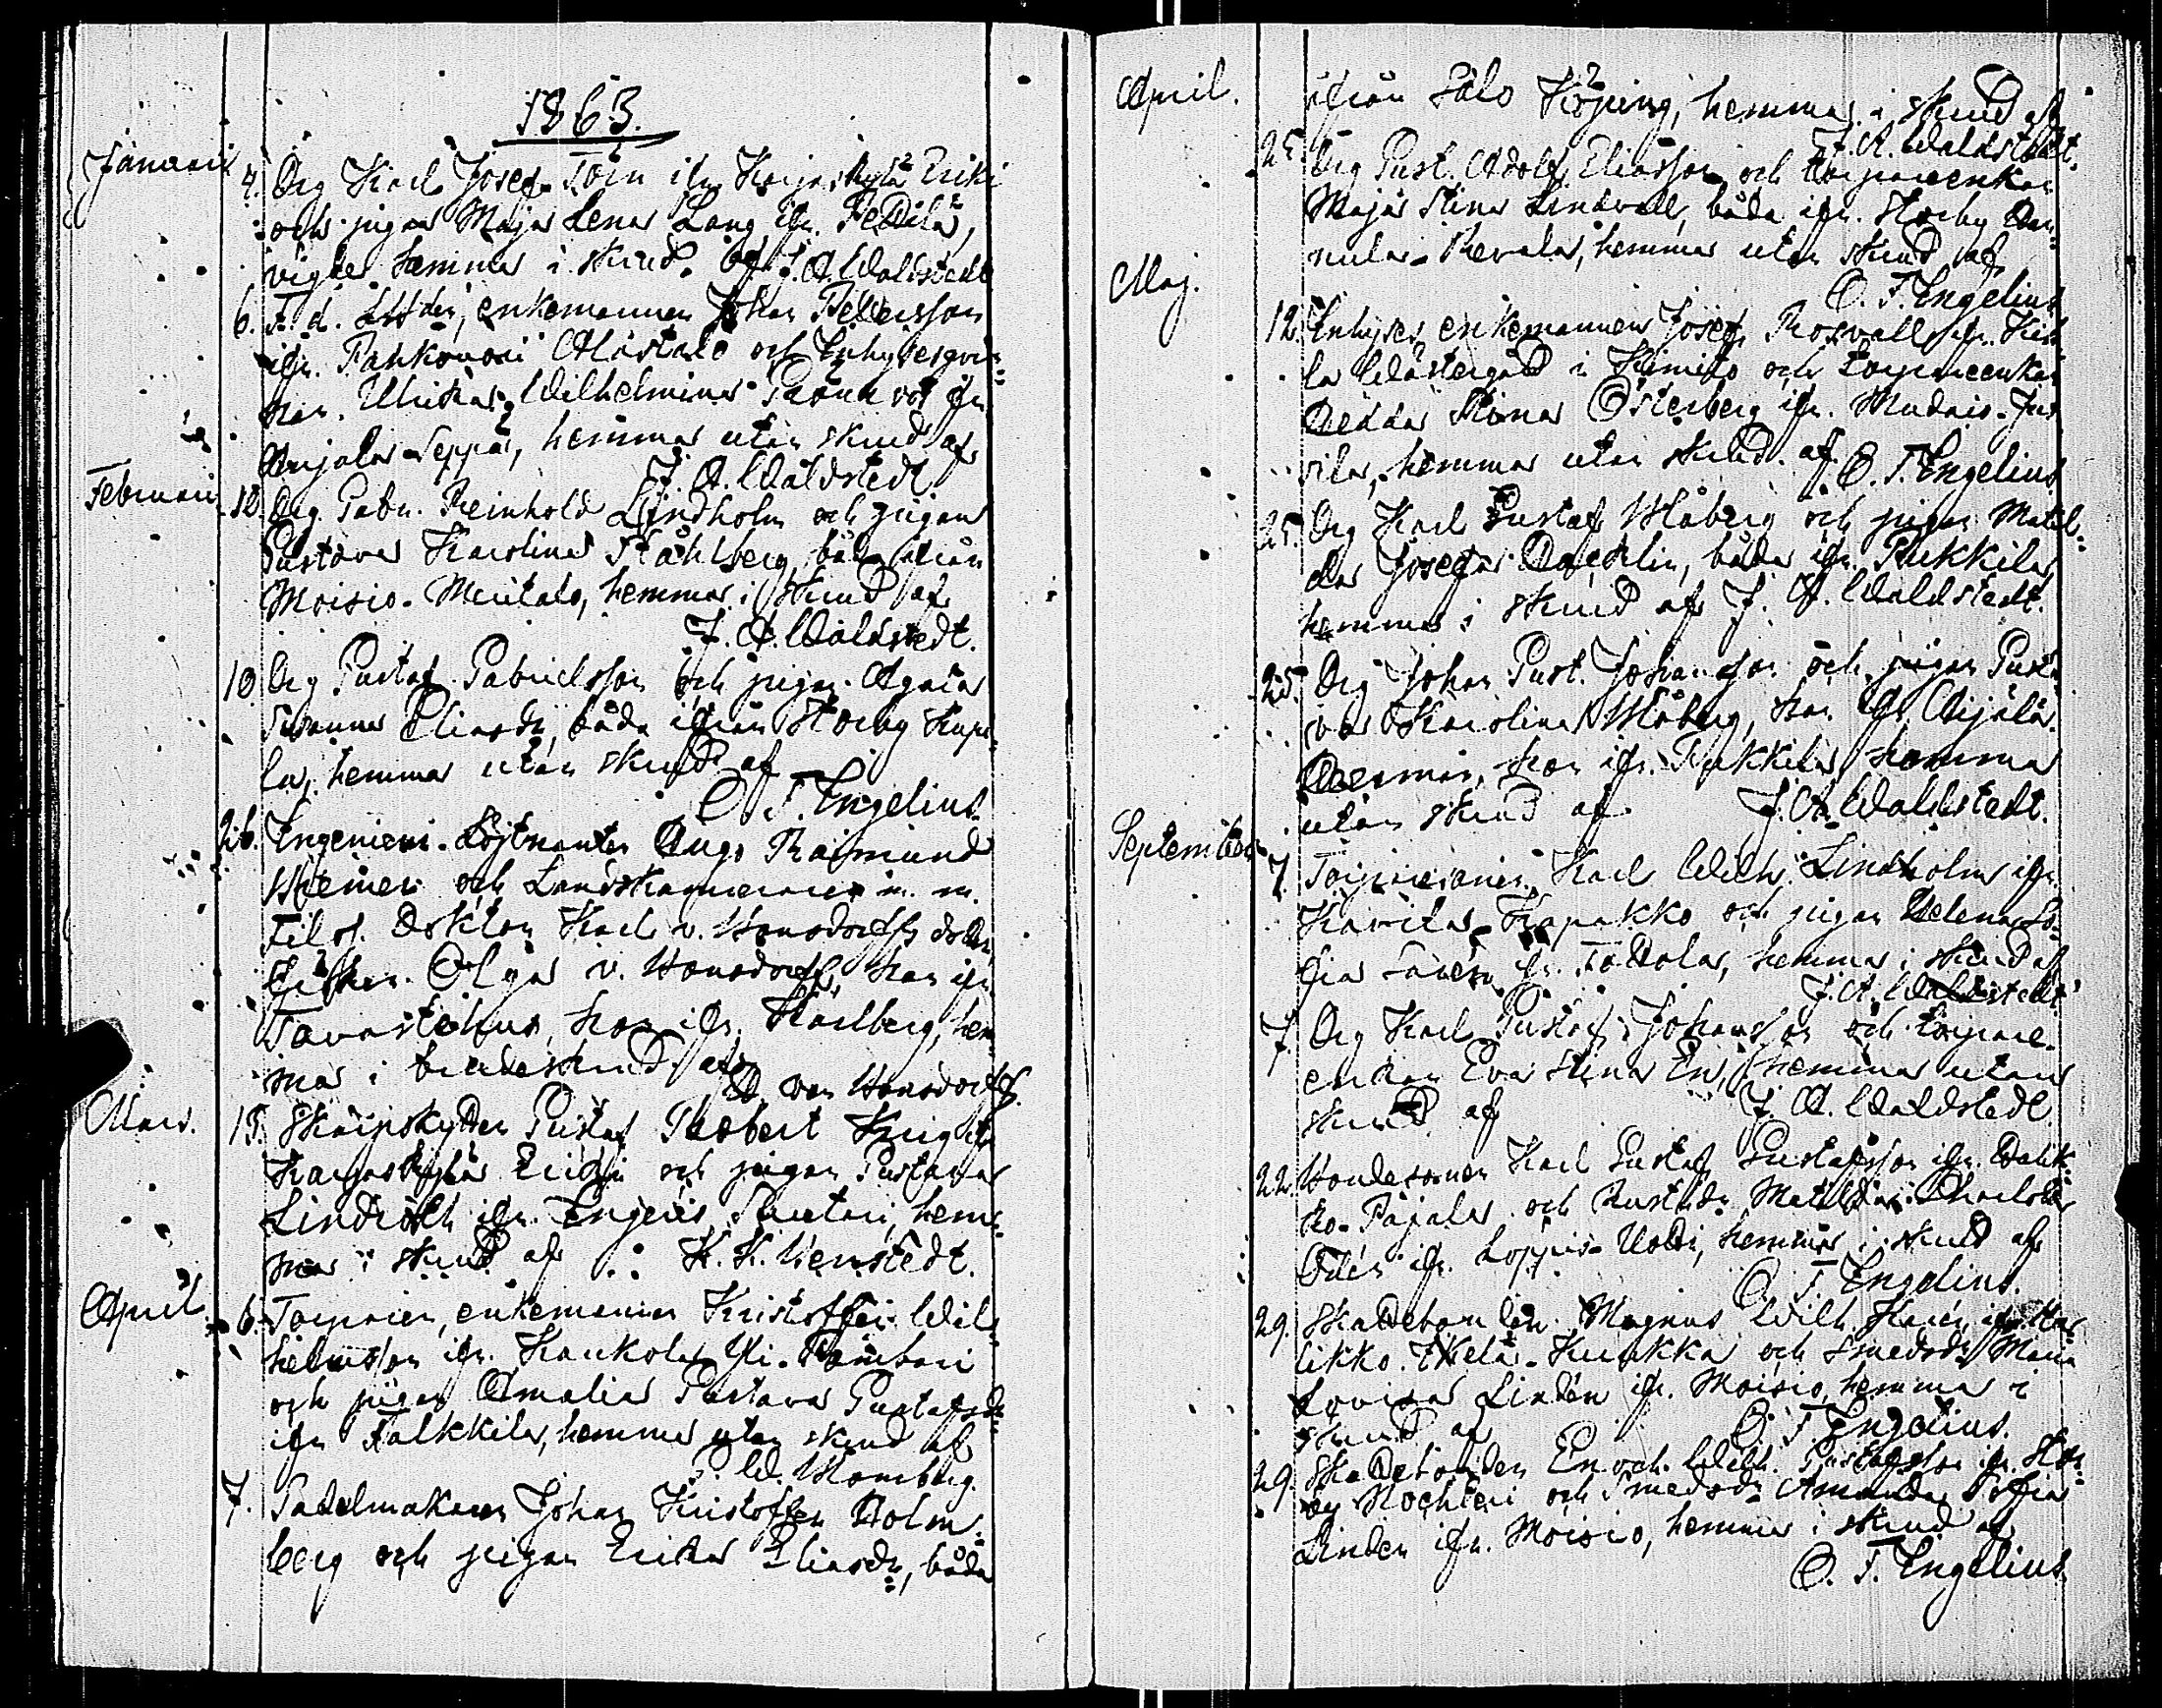 1863.
Januari 4. Drg Karl Josef Törn ifr. Karjaskylä Erikä
och pigan Maja Lena Lang ifr. Peddilä,
vigde hemma i skrud af J. A. Waldstedt
6. F. d. Ldb:den, enkemannen Johan Pettersson
ifr. Pahkonori Alastalo och Inhysesqvin-
nan Ulrika Wilhelmina ifr.
Anjala Seppä, hemma utan skrud af
J. A. Waldstedt
Februari 12. Drg. Gabr. Reinhold Lindholm och pigan
Gustava Karolina Ståhlberg, båda ifrån
Moisio-Meritalo, hemma i skrud af
J. A. Waldstedt.
10 Drg Gustaf Gabrielsson och pigan Agata
Susanna Eliasdr, båda ifrån Storby Kupi-
la, hemma utan skrud af
O. F. Engelius.
26. Ingenieur-Löjtnanten Hugo Raimund
och Landskamreraren m. m.
Filos. Doktor Karl v. Bonsdorffs dotter,
fröken Olga v. Bonsdorff, han ifr.
Tavastehus, hon ifr. Karlberg, hem-
ma i brudeskrud af
v. von Bonsdorff.
Mars. 15. Skarpskytten Gustaf Robert Krig ifr.
Karjaskylä Eriksi och pigan Gustava
Lindroth ifr. Engeris hem-
ma i skrud af K. K. Wenstedt.
April 6. Torparen, enkemannen Kristoffer Wil-
helmsson ifr. Kaukola Yli-
och pigan Amalia Gustava Gustafsdr
ifr. Talkkila, hemma utan skrud af
W. Blomberg.
7. Sadelmakaren Johan Kristoffer Holm-
berg och pigan Erika Eliasdr, båda
April. ifrån Salo Köping, hemma i skrud af
J. A. Waldstedt.
25. Drg Gust. Adolf Eliasson och torpareenkan
Maja Stina Lindvall, båda ifr. Storby An-
nula-Revala, hemma utan skrud af
O. F. Engelius
Maj. 12. Inhyses, enkemannen Josef Rosvall ifr.
la Westergård i Kimito och torpareenkan
Hedda Stina Österberg ifr. Mudais-Jus-
sila, hemma utan skrud af
O. F. Engelius
25. Drg Karl Gustaf Blåberg och pigan Matil-
da Josefa båda ifr. Pukkila,
hemma i skrud af J. A. Waldstedt.
25. Drg Johan Gust. Johansson och pigan Gusta-
va Karolina Blåberg, han ifr. Aijälä
hon ifr. Pukkila, hemma
utan skrud af J. A. Waldstedt.
September 7. Torparesonen Karl Wilh. Lindholm ifr.
Karila-Kapakko och pigan Helena So-
fia ifr. Tottola, hemma i skrud af
J. A. Waldstedt
7 Drg Karl Gustaf Johansson och torpare-
enkan Eva Stina En, hemma utan
skrud af J. A. Waldstedt
22. Bondesonen Karl Gustaf Gustafsson ifr.
ko-Pajala och Rusth:dr Matilda Charlotta
Odén ifr. Loppis-Uotti, hemma i skrud af
O. F. Engelius.
29. Skattebonden Magnus Wilh. ifr.
likko Etelä-Kurkka och Smedsdr Maria
Lovisa Lindén ifr. Moisio, hemma i
skrud af O. F. Engelius.
29. Skattebonden Enoch Wilh. Gustafsson ifr. Stor-
by Kochteri och Smedsdr Amanda Sofia
Linden ifr. Moisio, hemma i skrud af
O. F. Engelius.